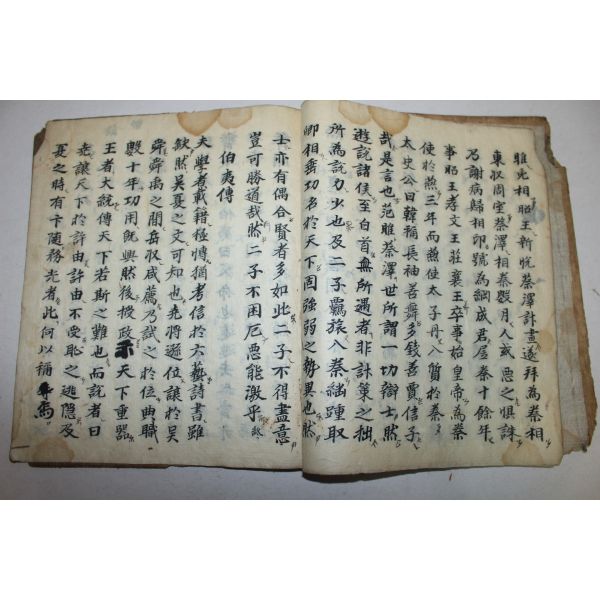 雎免相昭王新悅蔡澤計畫遂拜為秦相
東収周室蔡澤相秦數月人或惡之惧誅
乃謝病歸相印號為綱成君居秦十餘年
事昭王孝文王莊襄王卒事始皇帝為秦
使於燕三年而燕使太子丹入質於秦
太史公曰韓稱長袖善舞多錢善賈信
哉是言也范雎蔡澤世所謂一切辯士然
遊說諸侯至白首無所遇者非計策之拙
所為說力少也及二子羈旅入秦繼踵取
卿相垂功名於天下固強弱之勢異也然
士亦有偶合賢者多如此二子不得盡意
豈可勝道哉然二子不困厄惡能激乎
伯夷傳
夫學者載籍極博猶考信於六藝詩書雖
缺然吳夏之文可知也堯將遜位讓於吳
舜舜禹之間岳収咸薦乃試之於位典職
數十年功用既興然後授政示天下重器
王者大統傳天下若斯之難也而說者曰
堯讓天下於許由許由不受恥之逃隱及
夏之時有卞隨務光者此何以稱焉